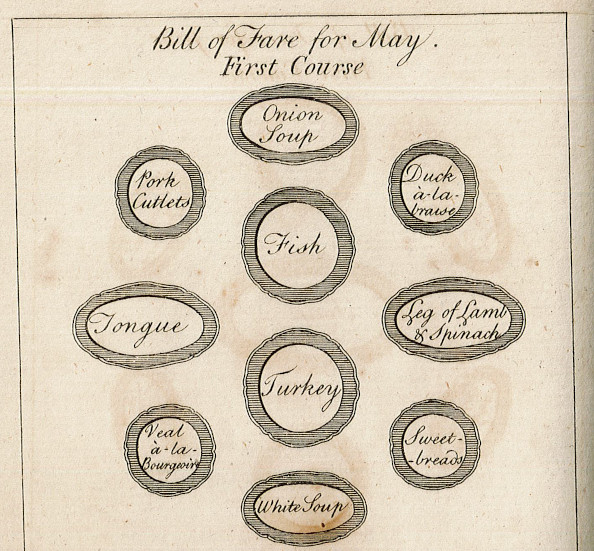 Bill of Fare for May.
First Course
Onion
Soup
Pork
Cutlets
Duck
à-la-
braise
Fish
Tongue
Leg of Lamb
& Spinach
Turkey
Veal
à-la-
Bourgeoire
Sweet-
-breads
White Soup